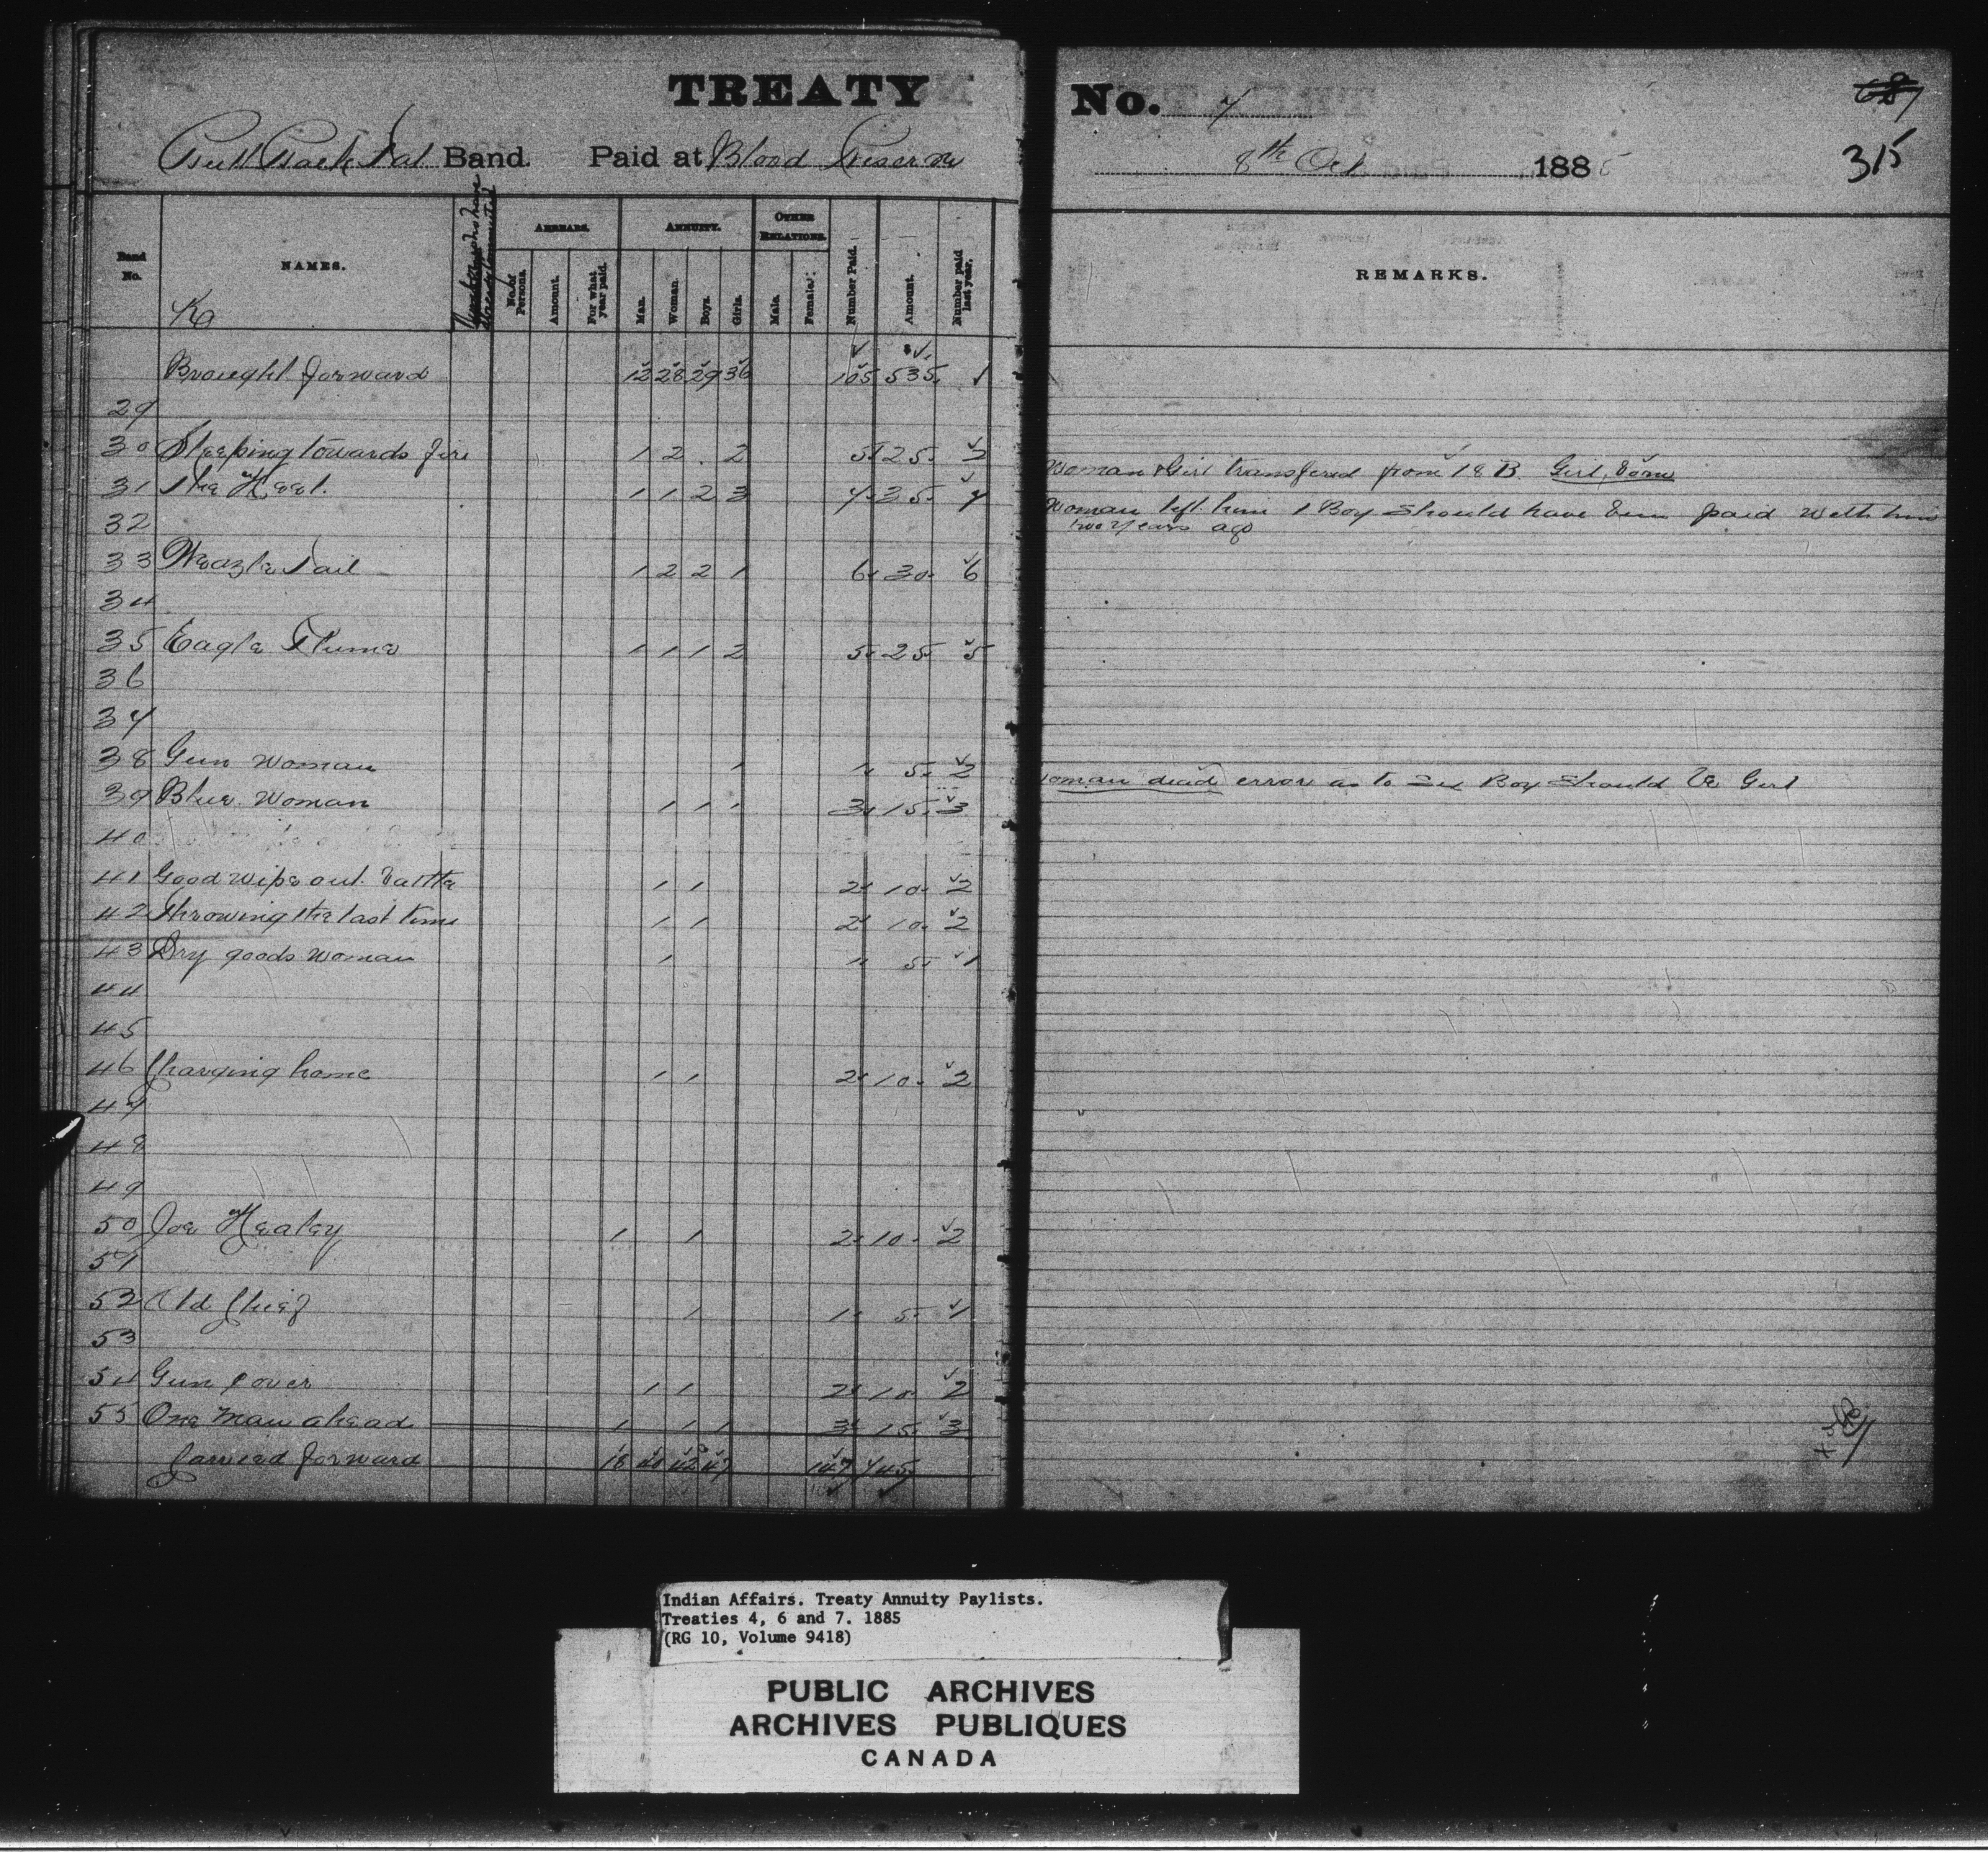 TREATY No. 7
687
315
Bull Back Fat Band. Paid at Blood Reserve 8th Oct 1885
Band No. NAMES. ARREARS. ANNUITY. OTHER RELATIONS. Number Paid. Amount. Number paid last year. REMARKS.
No. of Persons. Amount. For what year paid. Man. Woman. Boys. Girls. Male. Female.
Ka
Brought forward 12 28 29 36 105 535. 1
29
30 Sleeping towards fire 1 2 . 2 5. 25. 2
Woman & Girl transfered from 18 B. Girl, born
31 The Heel. 1 1 2 3 7. 35. 7
Woman left him 1 Boy should have been paid with him
two years ago
32
33 Weazle Tail 1 2 2 1 6. 30. 6
34
35 Eagle Plume 1 1 1 2 5. 25. 5
36
37
38 Gun woman 1 1. 5. 2
Woman dead error as to sex Boy should be Girl
39 Blue Woman 1 1 1 3. 15. 3
40
41 Good wipe out battle 1 1 2. 10. 2
42 Throwing the last time 1 1 2. 10. 2
43 Dry goods woman 1 1. 5. 1
44
45
46 Charging home 1 1 2. 10. 2
47
48
49
50 Joe Healey 1 1 2. 10. 2
51
52 Old Chief 1 1. 5. 1
53
54 Gun Cover 1 1 2. 10. 2
55 One Man ahead 1 1 1 3. 15. 3
Carried forward 18 40 42 47 147 745
Indian Affairs. Treaty Annuity Paylists.
Treaties 4, 6 and 7. 1885
(RG 10, Volume 9418)
PUBLIC ARCHIVES
ARCHIVES PUBLIQUES
CANADA